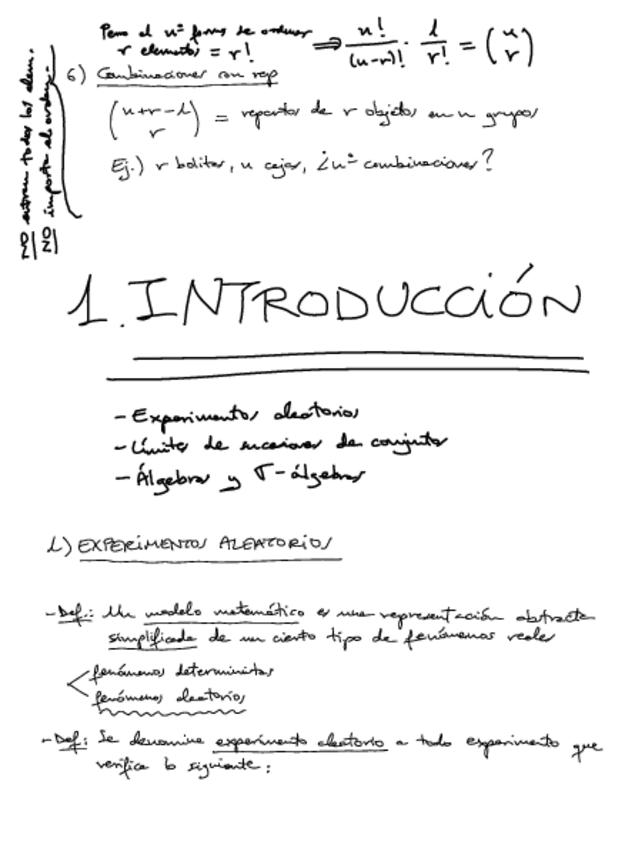 Pero el nº formas de ordenar
r elementos = r! ⟹ n!/(n-r)! · 1/r! = (n r)
6) Combinaciones con rep
(n+r-1 r) = repartos de r objetos en n grupos
Ej.) r bolitas, n cajas, ¿nº combinaciones?
NO entran todos los elem.
NO importa el orden
1. INTRODUCCIÓN
- Experimentos aleatorios
- Límites de sucesiones de conjuntos
- Álgebras y σ-álgebras
1) EXPERIMENTOS ALEATORIOS
- Def.: Un modelo matemático es una representación abstracta
simplificada de un cierto tipo de fenómenos reales
fenómenos deterministas
fenómenos aleatorios
- Def: Se denomina experimento aleatorio a todo experimento que
verifica lo siguiente: